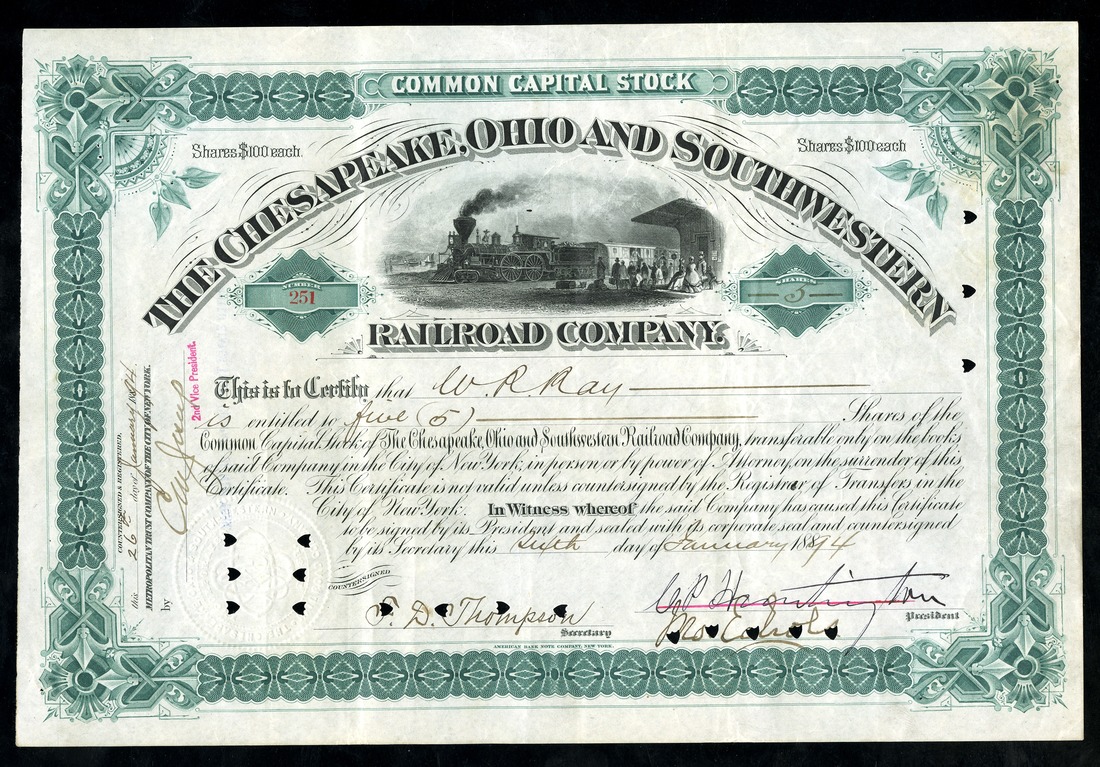 COMMON CAPITAL STOCK
Shares $100 each.
Shares $100 each
THE CHESAPEAKE, OHIO AND SOUTHWESTERN
NUMBER
251
SHARES
5
RAILROAD COMPANY.
This is to Certify that W. R. Ray
is entitled to five (5) Shares of the
Common Capital Stock of The Chesapeake, Ohio and Southwestern Railroad Company, transferable only on the books
of said Company in the City of New York, in person or by power of Attorney, on the surrender of this
Certificate. This Certificate is not valid unless countersigned by the Registrar of Transfers in the
City of New York. In Witness whereof the said Company has caused this Certificate
to be signed by its President and sealed with its corporate seal and countersigned
by its Secretary this day of January 1894
COUNTERSIGNED
F. D. Thompson
Secretary
C P Huntington
President
AMERICAN BANK NOTE COMPANY, NEW YORK.
COUNTERSIGNED & REGISTERED,
this 26th day of January 1894.
METROPOLITAN TRUST COMPANY OF THE CITY OF NEW YORK.
by
2nd Vice President.